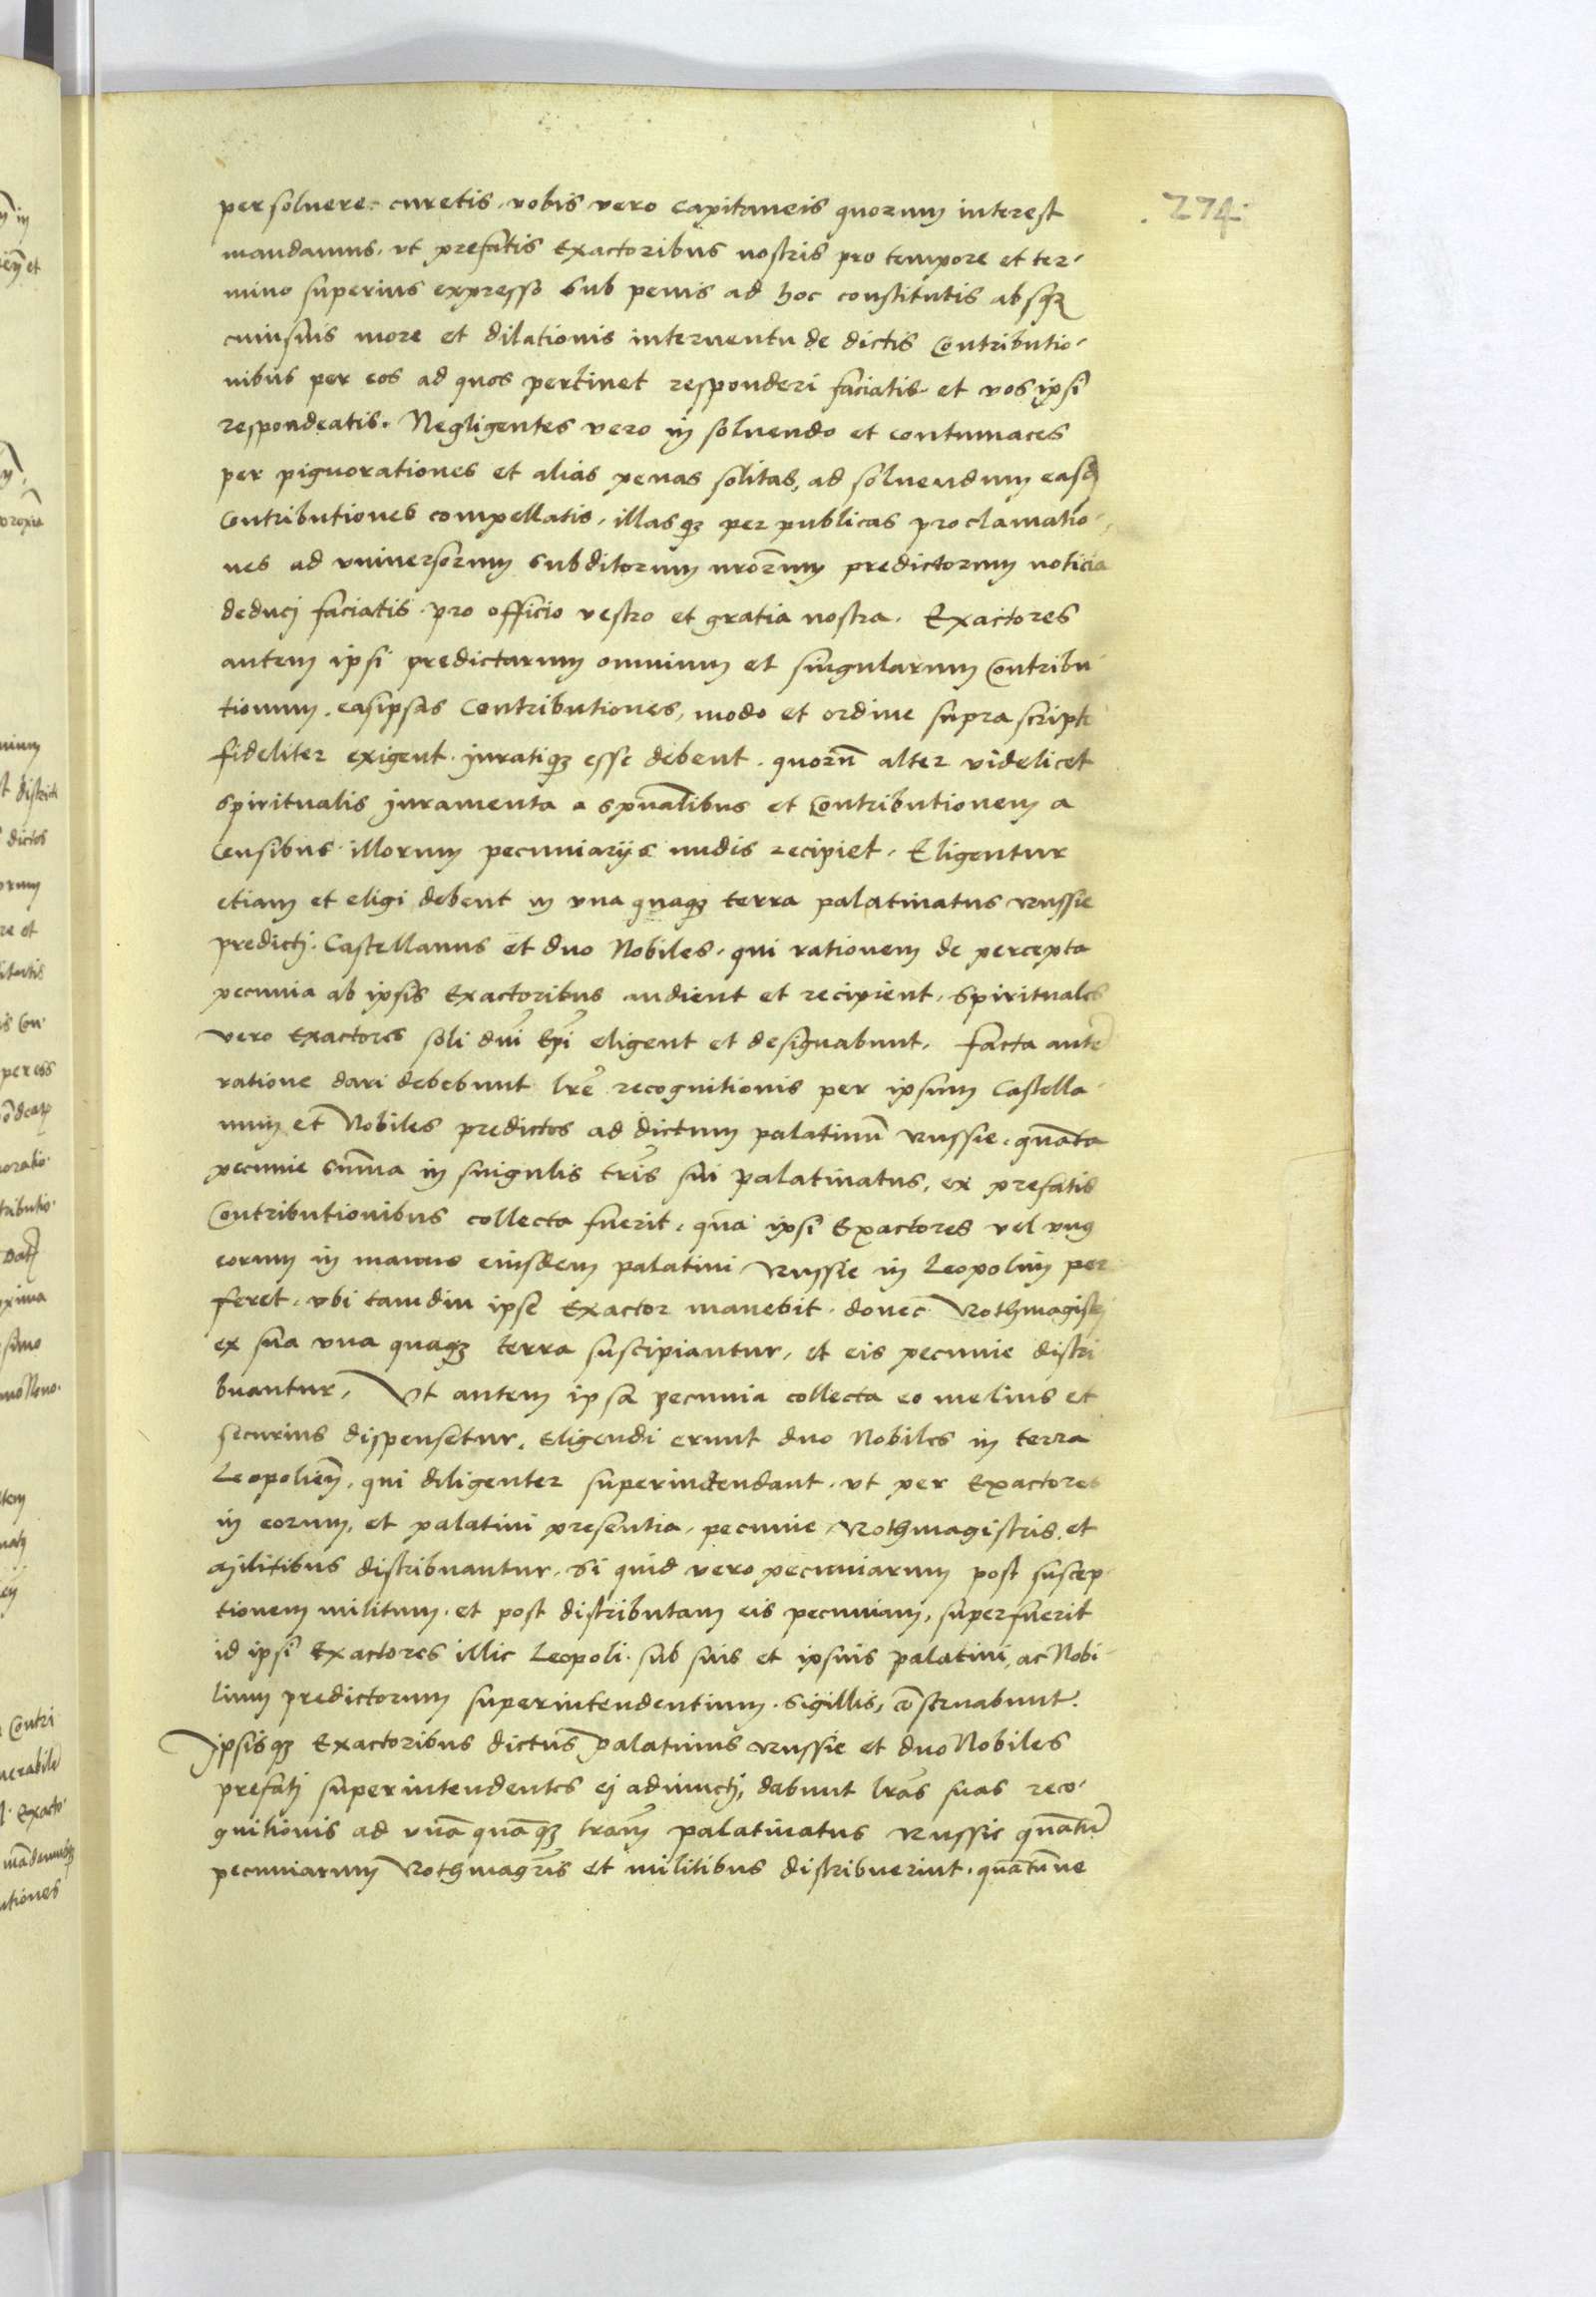 274
persoluere curetis. vobis vero Capitaneis quorum interest
mandamus. vt prefatis Exactoribus nostris pro tempore et ter-
mino superius expresso sub penis ad hoc constitutis absq3
cuiusuis more et dilationis interuentu de dictis Contributio-
nibus per eos ad quos pertinet responderi faciatis et vos ipsi
respondeatis. Negligentes vero in soluendo et contumaces
per pignorationes et alias penas solitas, ad soluendum easdē
Contributiones compellatis, illasq3 per publicas proclamatio-
nes ad vniuersorum subditorum nr̄orum predictorum noticiā
deducj faciatis. pro officio vestro et gratia nostra. Exactores
autem ipsi predictarum omnium et singularum Contribu-
tionum. easipsas Contributiones, modo et ordine supra scripto
fideliter exigent. Juratiq3 esse debent. quorū alter videlicet
spiritualis juramenta a spūalibus et Contributionem a
Censibus illorum pecuniarijs nudis recipiet. Eligentur
etiam et eligi debent in vna quaq3 terra palatinatus Russie
predictj. Castellanus et duo Nobiles. qui rationem de percepta
pecunia ab ipsis Exactoribus audient et recipient. Spirituales
vero Exactores soli dn̄i Ep̄i eligent et designabunt. Facta autē
ratione dari debebunt lr̄e recognitionis per ipsum Castella-
num et Nobiles predictos ad dictum palatinū Russie. quāta
pecunie sum̄a in singulis tr̄is sui palatinatus, ex prefatis
Contributionibus collecta fuerit. quā ipsi Exactores vel vnus
eorum in manus eiusdem palatini Russie in Leopolim per-
feret. vbi tamdiu ipse Exactor manebit. donec Rothmagistri
ex sua vna quaq3 terra suscipiantur, et eis pecunie distri-
buantur. Vt autem ipsa pecunia collecta eo melius et
securius dispensetur. Eligendi erunt duo Nobiles in terra
Leopolien̄. qui diligenter superintendant. vt per Exactores
in eorum, et palatini presentia, pecunie Rothmagistris. et
Militibus distribuantur. Si quid vero pecuniarum post suscep-
tionem militum. et post distributam eis pecuniam, superfuerit
id ipsi Exactores illic Leopoli. sub suis et ipsius palatini, ac Nobi-
lium predictorum superintendentium. sigillis, cōseruabunt.
Ipsisq3 Exactoribus dictus palatinus Russie et duo Nobiles
prefatj superintendentes ej adiunctj, dabunt lr̄as suas reco-
gnitionis ad vnā quāq3 tr̄am palatinatus Russie quātū
pecuniarum Rothmagr̄is et militibus distribuerint. quātūne